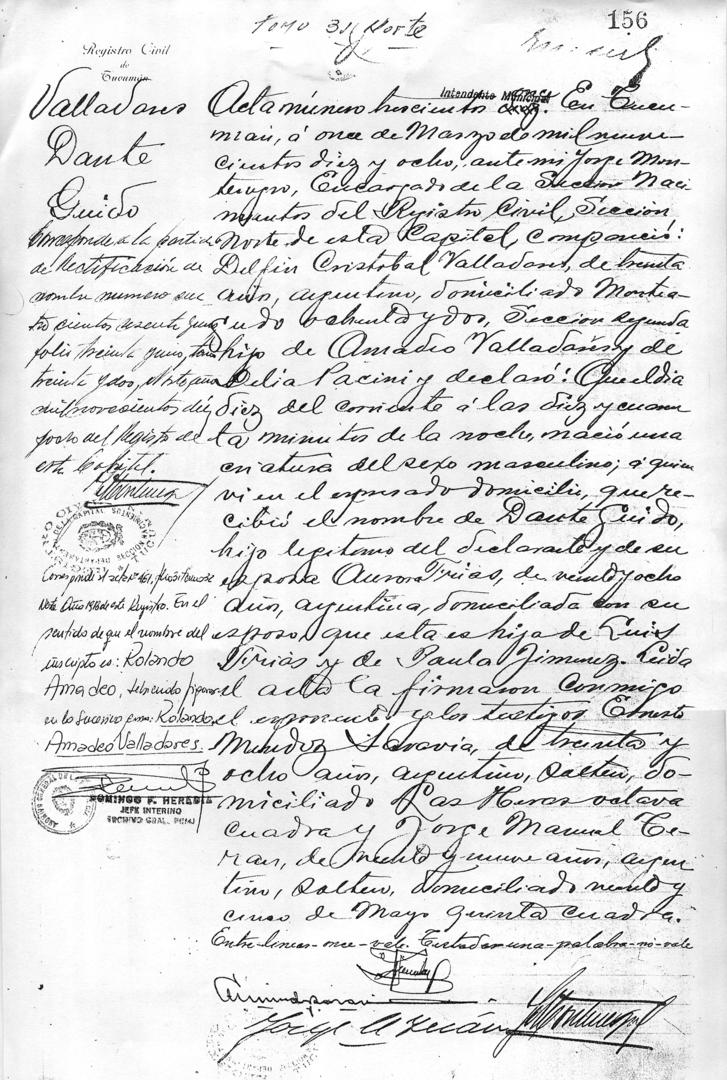 156
Tomo 31 Norte
Registro Civil
de
Tucumán
Intendente Municipal
Valladares
Dante
Guido
Acta número trescientos. En Tucu-
mán, á once de Marzo de mil nueve-
cientos diez y ocho, ante mi Jorge Mon-
tenegro, Encargado de la Seccion Naci-
mientos del Registro Civil, Sección
Norte de esta Capital, compareció:
Delfin Cristobal Valladares, de treinta
años, argentino, domiciliado Montea-
gudo ochenta y dos, Seccion segunda
hijo de Amadeo Valladares y de
Delia Pacini y declaró: Que el dia
diez del corriente á las diez y cuaren-
ta minutos de la noche, nació una
criatura del sexo masculino; á quien
vi en el expresado domicilio, que re-
cibió el nombre de Dante Guido,
hijo legitimo del declarante y de su
esposa Aurora Frias, de veinte y ocho
años, argentina, domiciliada con su
esposo, que esta es hija de Luis
Frias y de Paula Jimenez. Leida
el acta la firmaron conmigo
el exponente y los testigos Ernesto
Mendez Saravia, de treinta y
ocho años, argentino, soltero, do-
miciliado Las Heras octava
cuadra y Jorge Manuel Te-
ran, de veinte y nueve años, argen-
tino, soltero, domiciliado veinte y
cinco de Mayo quinta cuadra.
Entre-lineas-once-vale. Testado-una-palabra-no-vale
Corresponde a la partida
de Rectificación de
nombre numero cua
tro cientos sesenta y uno
folio treinta y uno, tomo
treinta y dos, Norte, año
mil novecientos diez
y ocho del Registro de
esta Capital.
Corresponde al acta nº 461,
Norte Año 1918 de este Registro. En el
sentido de que el nombre del
inscripto es: Rolando
Amadeo, debiendo figurar
en lo sucesivo como: Rolando
Amadeo Valladores.
DOMINGO F. HEREDIA
JEFE INTERINO
ARCHIVO GRAL. P.C.M.J
Jorge M Terán